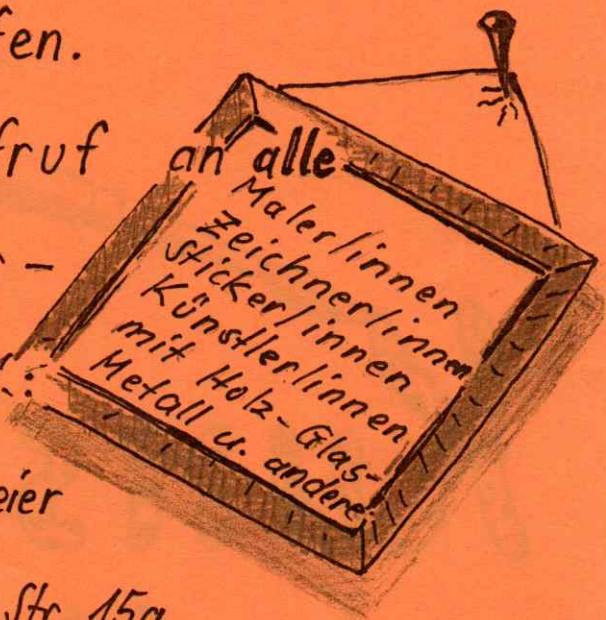 fen.
fruf an alle
Maler/innen
Zeichnerlinnen
Sticker/innen
Künstlerlinnen
mit Holz-Glas-
Metall u. andere
eier
Str. 15a